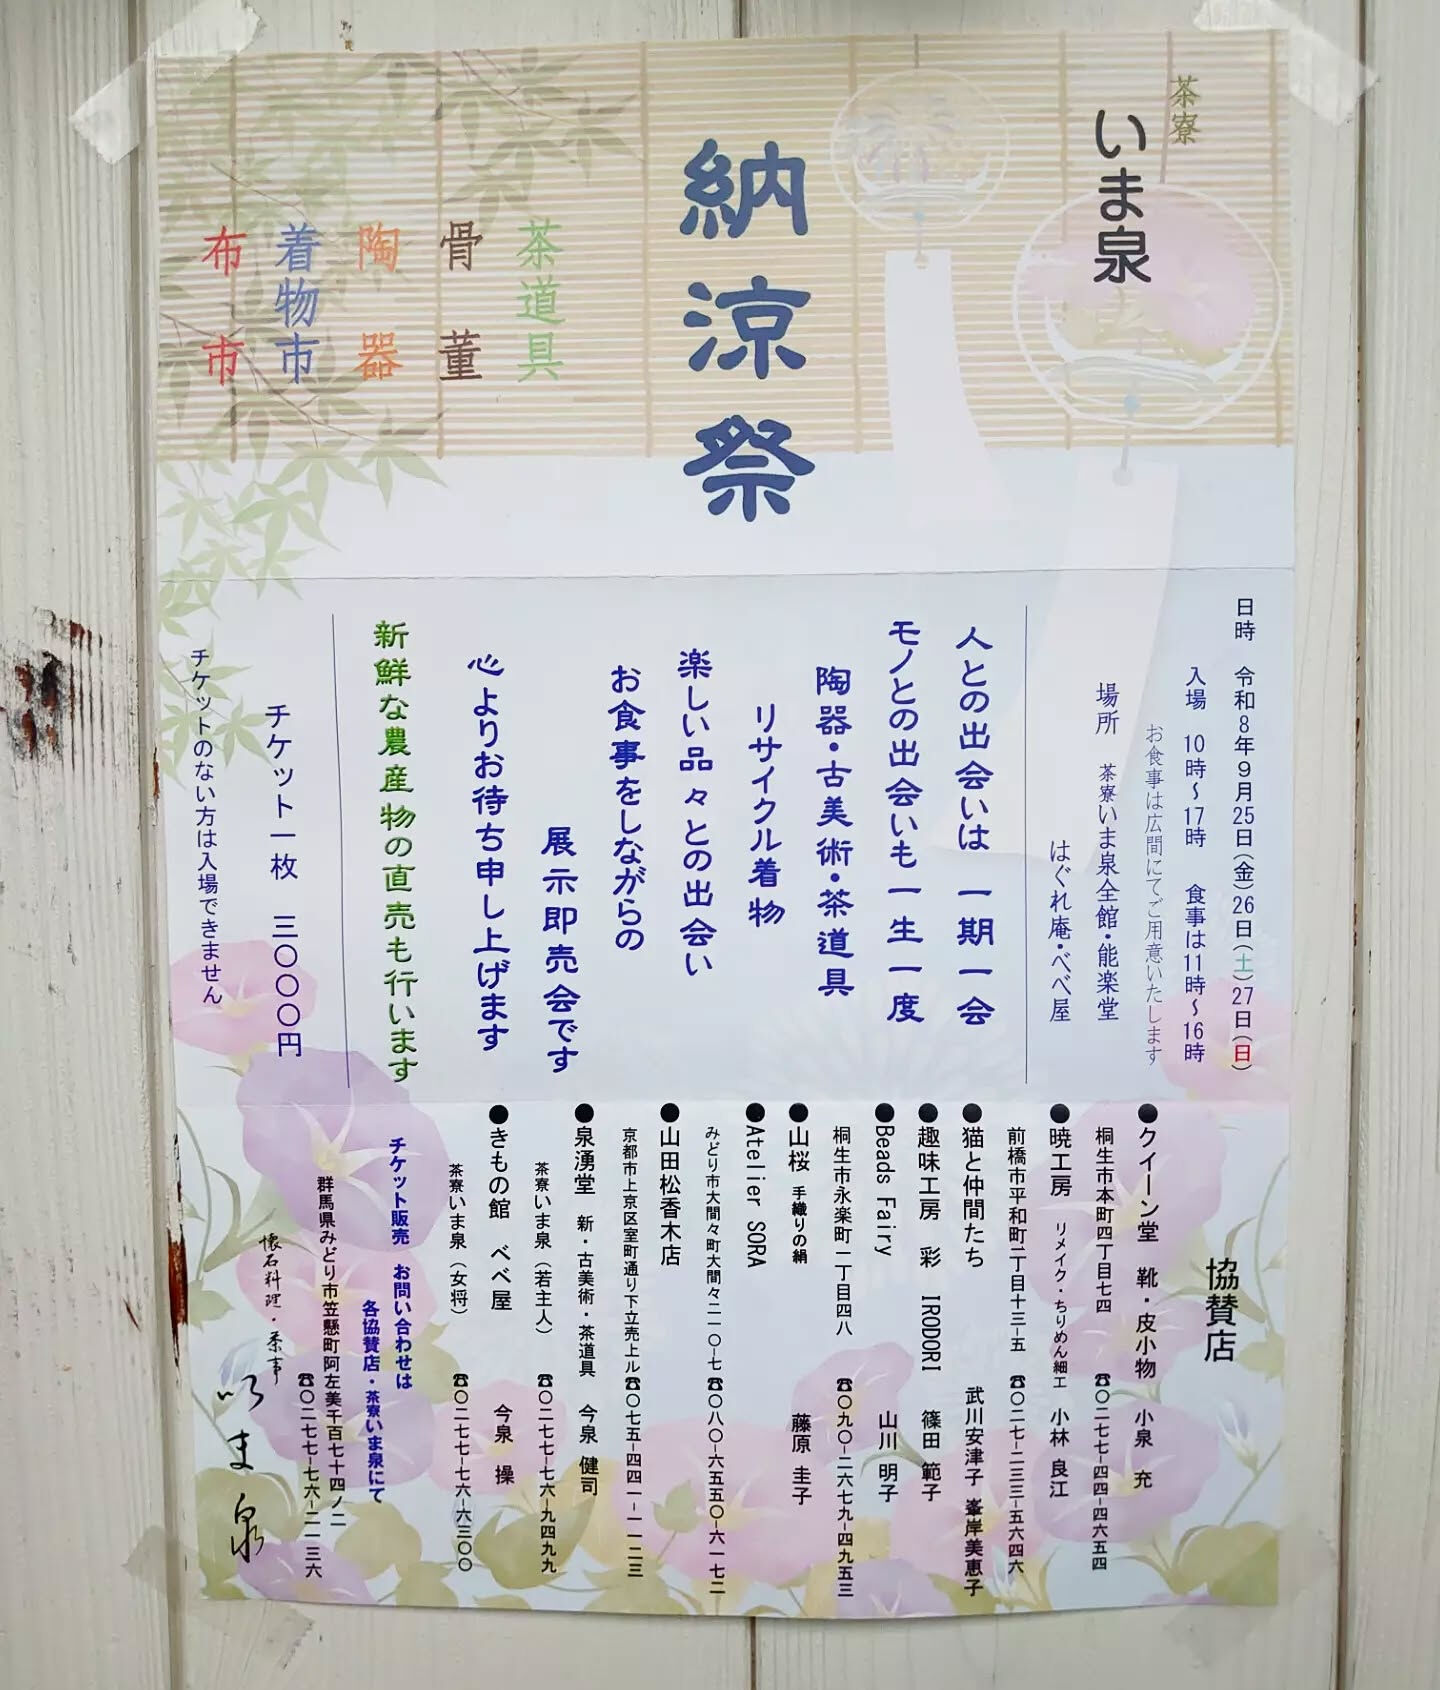 茶寮
いま泉
納涼祭
茶道具
骨董
陶器
着物市
布市
日時 令和8年9月25日(金)26日(土)27日(日)
入場 10時～17時 食事は11時～16時
お食事は広間にてご用意いたします
場所 茶寮いま泉全館・能楽堂
はぐれ庵・べべ屋
人との出会いは 一期一会
モノとの出会いも一生一度
陶器・古美術・茶道具
リサイクル着物
楽しい品々との出会い
お食事をしながらの
展示即売会です
心よりお待ち申し上げます
新鮮な農産物の直売も行います
チケット一枚 三〇〇〇円
チケットのない方は入場できません
協賛店
●クイーン堂 靴・皮小物 小泉 充
桐生市本町四丁目七四 ☎〇二七七-四四-四六五四
●暁工房 リメイク・ちりめん細工 小林 良江
前橋市平和町二丁目十三-五 ☎〇二七-二三三-五六四六
●猫と仲間たち 武川安津子 峯岸美恵子
●趣味工房 彩 IRODORI 篠田 範子
●Beads Fairy 山川 明子
桐生市永楽町一丁目四八 ☎〇九〇-二六七九-四九五三
●山桜 手織りの絹 藤原 圭子
●Atelier SORA
みどり市大間々町大間々二一〇-七 ☎〇八〇-六五五〇-六一七二
●山田松香木店
京都市上京区室町通り下立売上ル ☎〇七五-四四一-一一二三
●泉湧堂 新・古美術・茶道具 今泉 健司
茶寮いま泉（若主人） ☎〇二七七-七六-九四九九
●きもの館 べべ屋 今泉 操
茶寮いま泉（女将） ☎〇二七七-七六-六三〇〇
チケット販売 お問い合わせは
各協賛店・茶寮いま泉にて
群馬県みどり市笠懸町阿左美千百七十四ノ二
☎〇二七七-七六-二一三六
懐石料理・茶事
いま泉